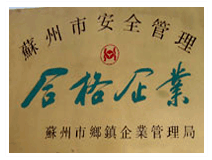 蘇州市安全管理
合格企業
蘇州市鄉鎮企業管理局